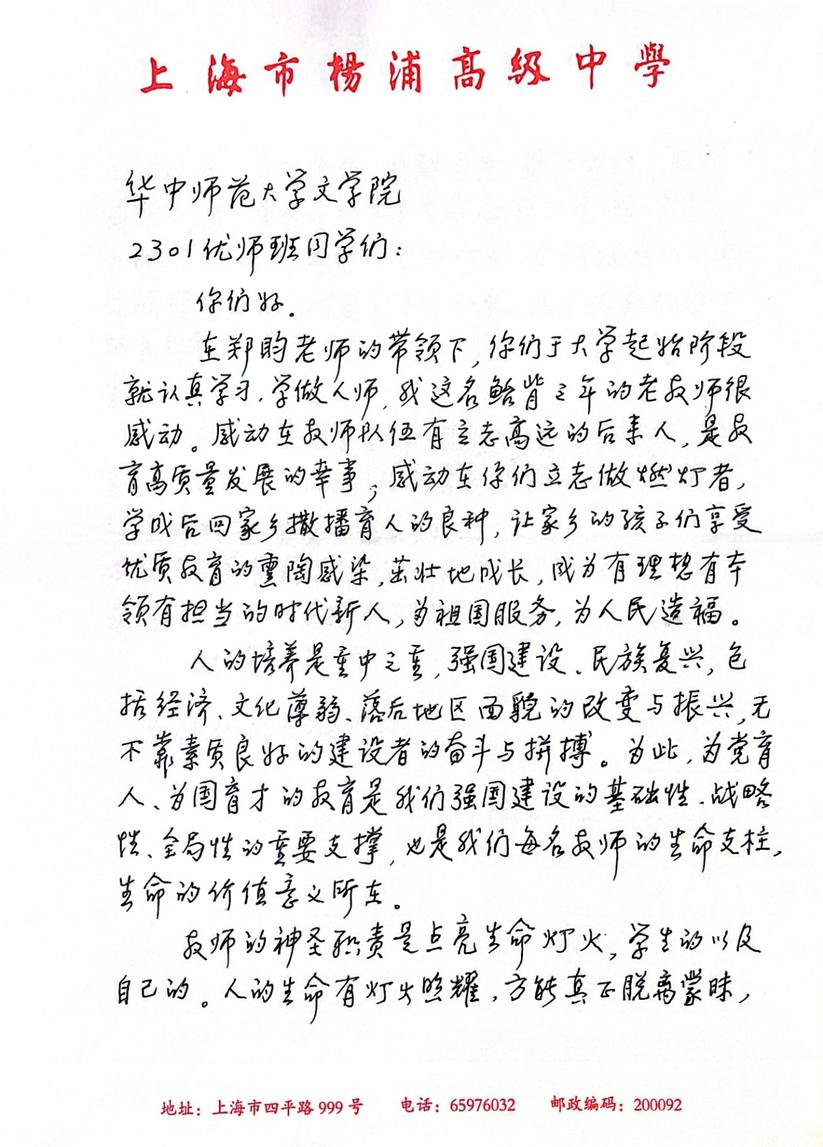 上海市楊浦高級中學
华中师范大学文学院
2301优师班同学们：
你们好。
在郑昀老师的带领下，你们于大学起始阶段
就认真学习，学做人师，我这名鲐背之年的老教师很
感动。感动在教师队伍有立志高远的后来人，是教
育高质量发展的幸事；感动在你们立志做燃灯者，
学成后回家乡撒播育人的良种，让家乡的孩子们享受
优质教育的熏陶感染，茁壮地成长，成为有理想有本
领有担当的时代新人，为祖国服务，为人民造福。
人的培养是重中之重，强国建设、民族复兴，包
括经济、文化薄弱、落后地区面貌的改变与振兴，无
不靠素质良好的建设者的奋斗与拼搏。为此，为党育
人、为国育才的教育是我们强国建设的基础性、战略
性、全局性的重要支撑，也是我们每名教师的生命支柱，
生命的价值意义所在。
教师的神圣职责是点亮生命灯火，学生的以及
自己的。人的生命有灯火照耀，方能真正脱离蒙昧，
地址：上海市四平路999号 电话：65976032 邮政编码：200092